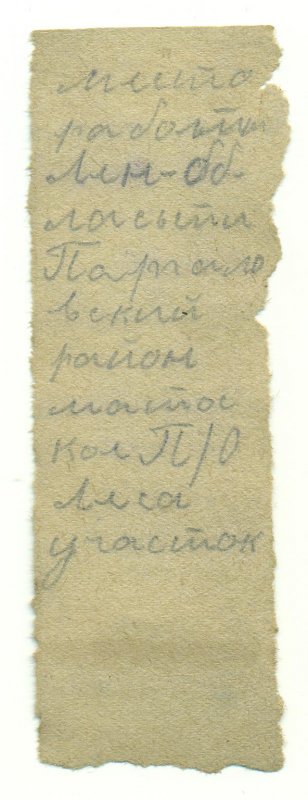 место
работы
Лен-об
ласьти
Паргало
вский
район
маста
кое П/О
Леса
участок